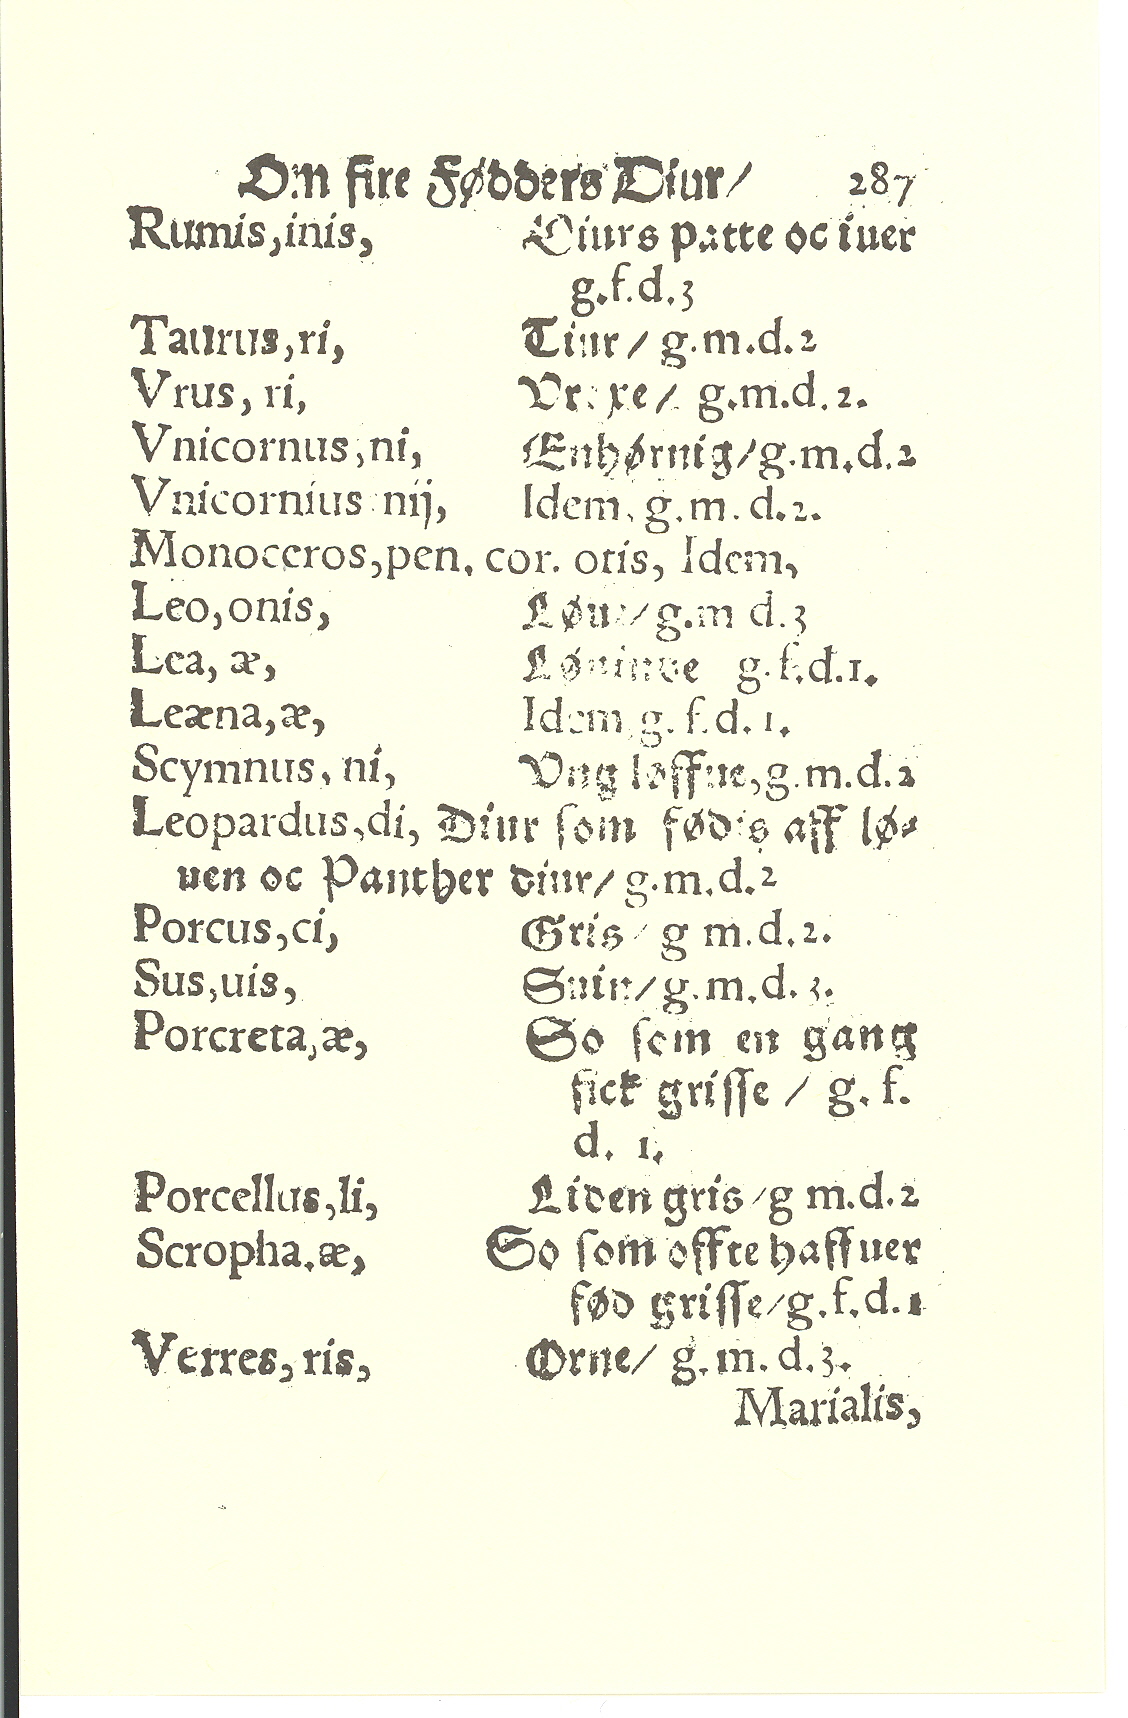 Om fire Fødders Diur/ 287
Rumis,inis, Diurs patte oc iuer
g.f.d.3
Taurus,ri, Tiur/ g.m.d.2
Vrus, ri, g.m.d.2.
Vnicornus,ni, Enhørnig/g.m.d.2
Vnicornius nij, Idem, g.m.d.2.
Monoceros,pen. cor. otis, Idem,
Leo,onis, Løue/g.m d.3
Lea, æ, Løninde g.f.d.1.
Leæna,æ, Idem g.f.d.1.
Scymnus, ni, Vng løffue,g.m.d.2
Leopardus,di, Diur som fødis aff lø-
uen oc Panther diur/ g.m.d.2
Porcus,ci, Gris/ g m.d.2.
Sus,uis, Suin/g.m.d.3.
Porcreta,æ, So som en gang
fick grisse / g. f.
d. 1.
Porcellus,li, Liden gris/g m.d.2
Scropha.æ, So som offte haffuer
fød grisse/g.f.d.1
Verres, ris, Orne/ g.m.d.3.
Marialis,